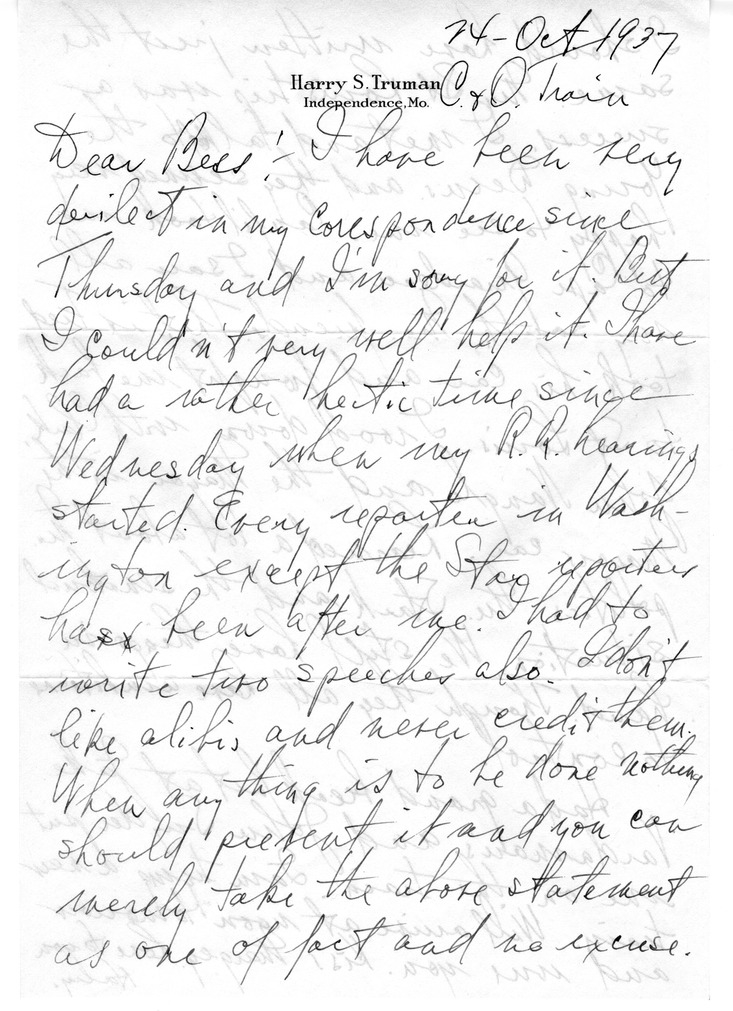 24-Oct. 1937
Harry S. Truman
Independence, Mo.
C. & O. train
Dear Bess:- I have been very
derilect in my corespondence since
Thursday and I'm sorry for it. But
I couldn't very well help it. I have
had a rather hectic time since
Wednesday when my R.R. hearings
started. Every reporter in Wash-
ington except the Star reporters
has been after me. I had to
write two speeches also. I don't
like alibis and never credit them.
When anything is to be done nothing
should prevent it and you can
merely take the above statement
as one of fact and no excuse.